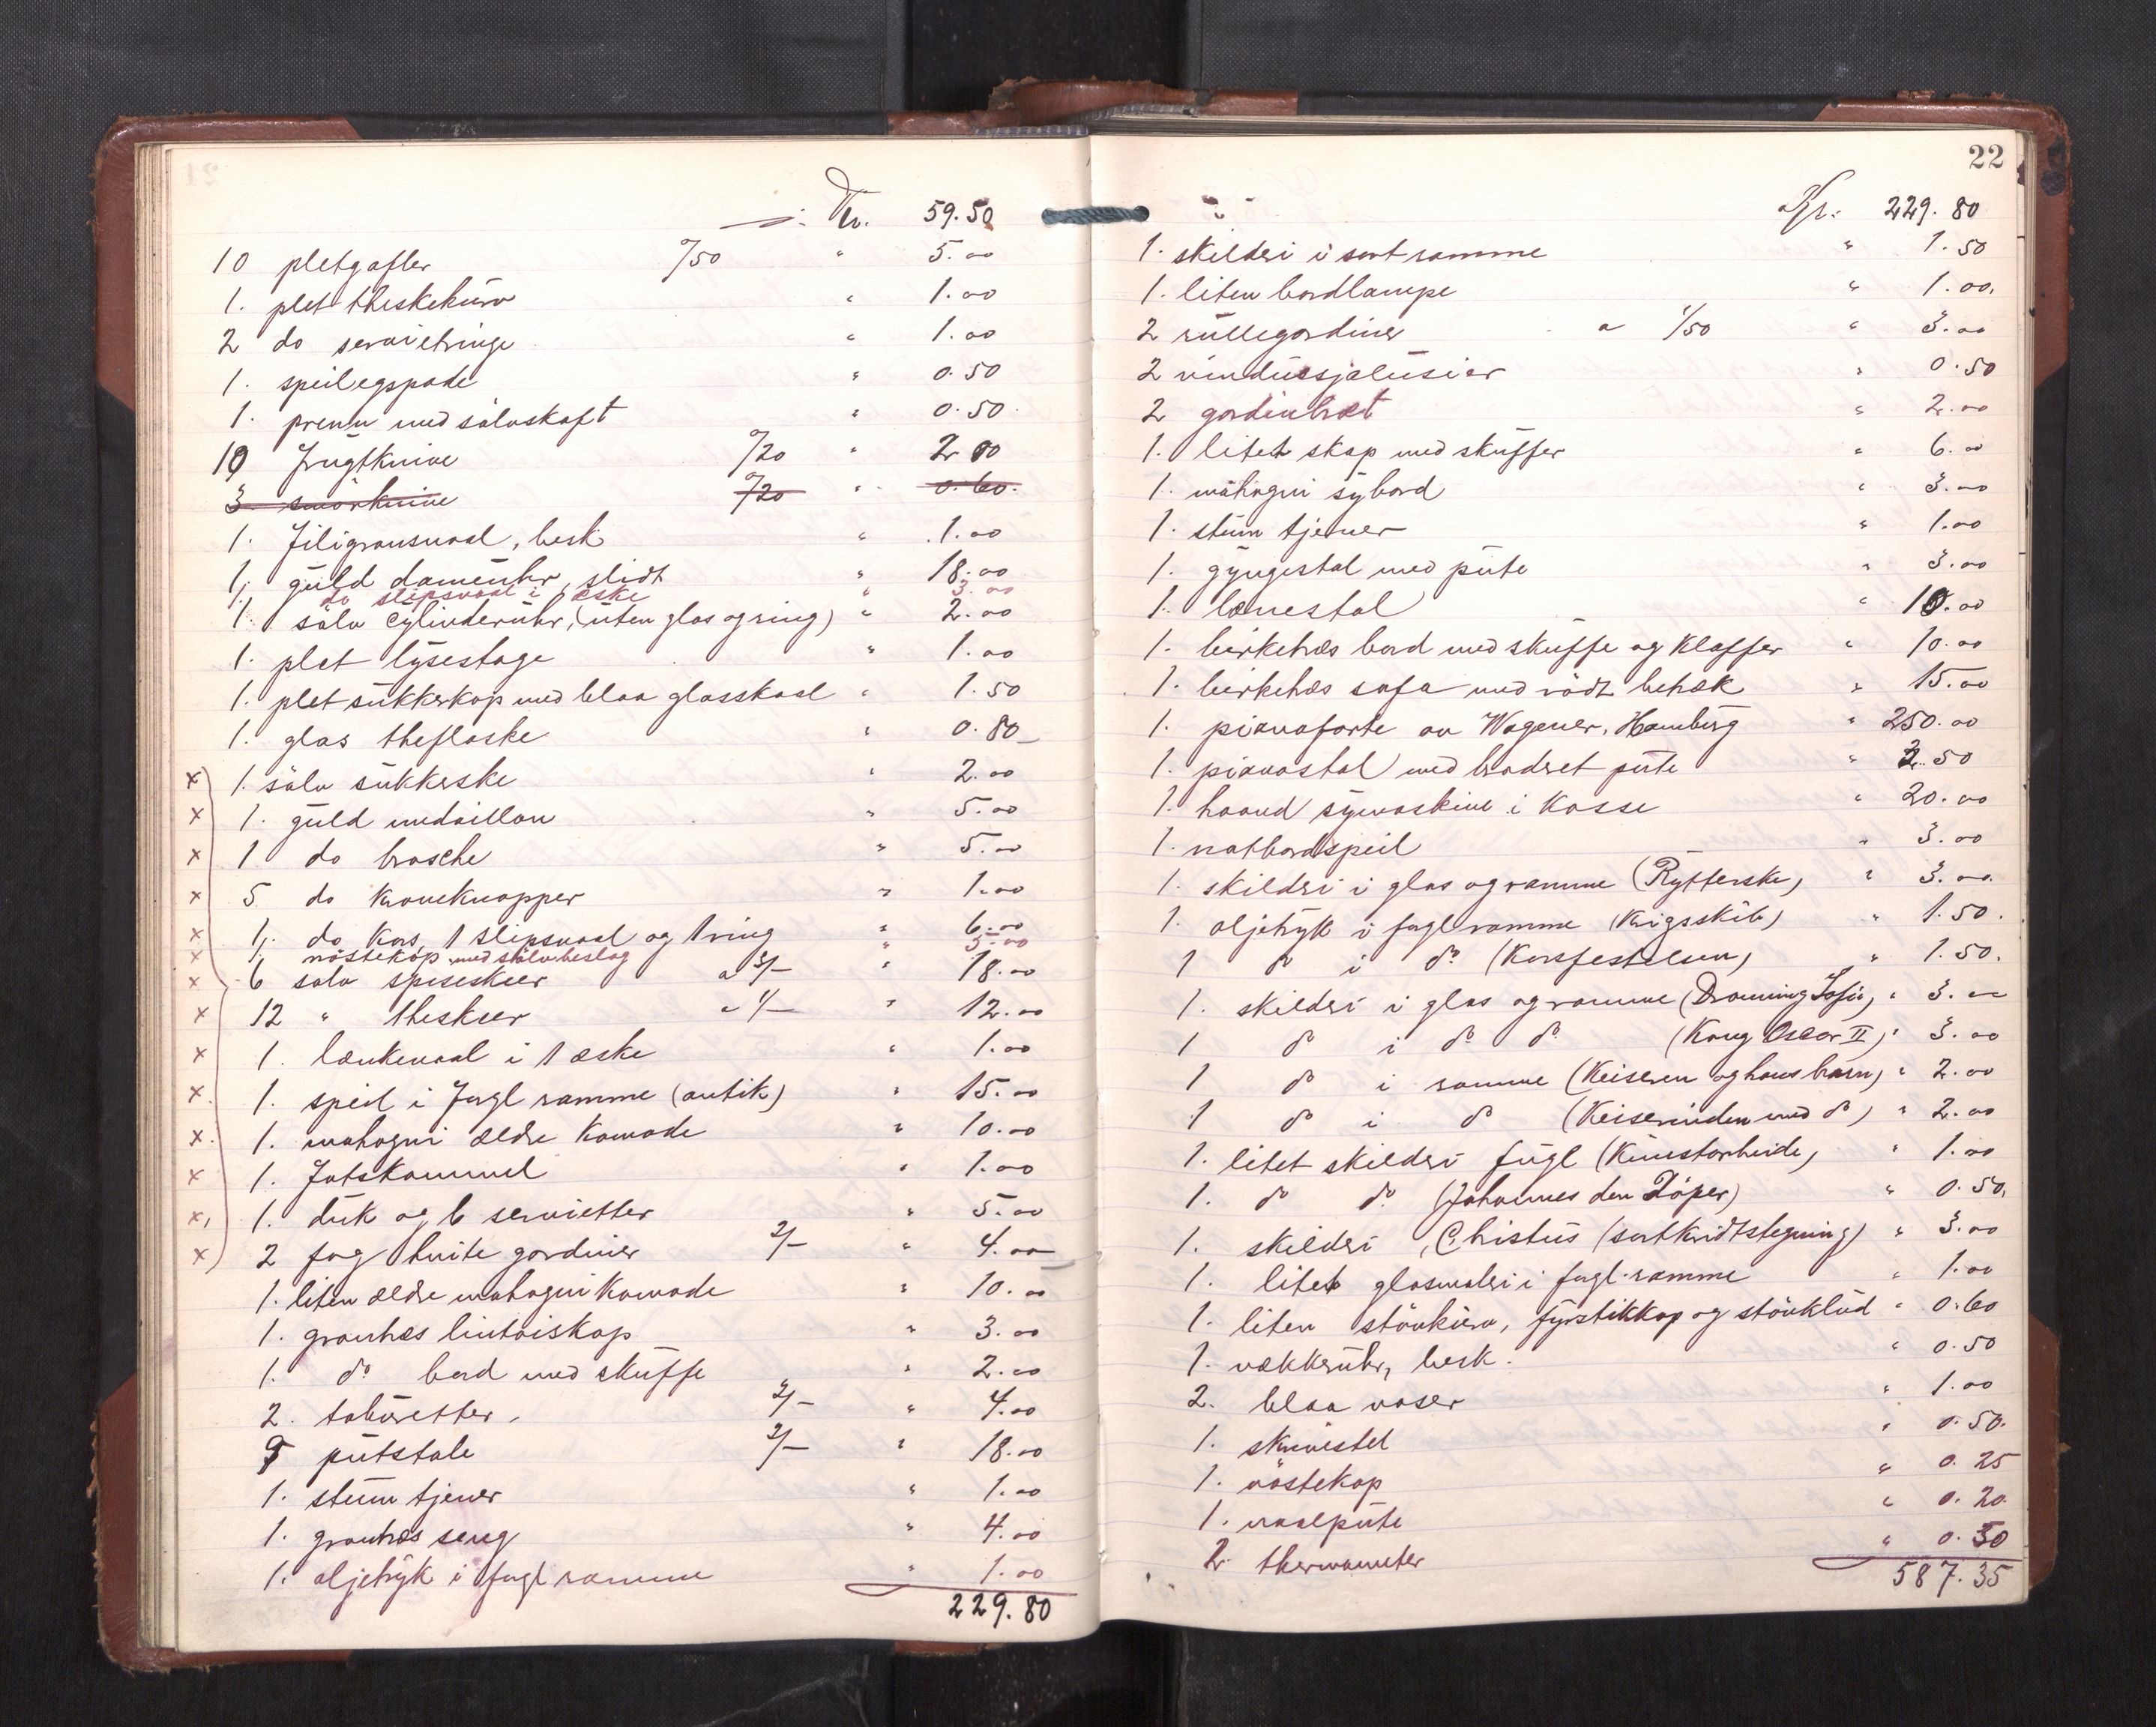 Kr. 59.50
10 pletgafler º/50 " 5.00
1. plet theskekurv " 1.00
2 do servietringe " 1.00
1. speilegspade " 0.50
1. prenn med sölvskaft " 0.50
10 frugtknive º/20 " 2.00
3 smörknive º/20 " 0.60.
1. filigransnaal, besk. " 1.00
1. guld dameuhr, slidt " 18.00
1. do slipsnaal i æske " 3.00
1. sölv cylinderuhr, (uten glas og ring) " 2.00
1. plet lysestage " 1.00
1. plet sukkerkop med blaa glasskaal " 1.50
1. glas theflaske " 0.80
x 1. sölv sukkerske " 2.00
x 1. guld medaillon " 5.00
x 1 do brosche " 5.00
x 5 do kraveknapper " 1.00
x 1. do kors, 1 slipsnaal og 1 ring " 6.00
x 1. nöstekop med sölvbeslag " 3.00
x 6 sölv spiseskeer a 3/- " 18.00
x 12 " theskeer a 1/- " 12.00
x 1. lænkenaal i 1 æske " 1.00
x. 1. speil i forgl ramme (antik) " 15.00
x. 1. mahogni ældre komode " 10.00
x 1. fotskammel " 1.00
x, 1. duk og 6 servietter " 5.00
x 2 fag hvite gardiner 2/- " 4.00
1. liten ældre mahogni komode " 10.00
1. grantræs lintøiskap " 3.00
1. do bord med skuffe " 2.00
2. taburetter. 2/- " 4.00
9 putstole 2/- " 18.00
1. stum tjener " 1.00
1. grantræs seng " 4.00
1. oljetryk i forgl ramme " 1.00
229.80
22
Kr. 229.80
1. skilderi i sort ramme " 1.50
1. liten bordlampe " 1.00.
2 rullegardiner a 1/50 " 3.00
2 vinduesjalusier " 0.50
2 gardinbræt " 2.00
1. litet skap med skuffer " 6.00
1. mahogni sybord " 3.00
1. stum tjener " 1.00
1. gyngestol med pute " 3.00
1. lænestol " 10.00
1. birketræs bord med skuffe og klaffer " 10.00
1. birketræs sofa med rödt betræk " 15.00
1. pianoforte av Wagener, Hamburg " 250.00
1. pianostol med brodret pute " 2.50
1. haand symaskine i kasse " 20.00
1. natbordspeil " 3.00
1. skilderi i glas og ramme (Rytterske) " 3.00.
1. oljetryk i forgl ramme (Krigsskib) " 1.50.
1 do i do (Korsfestelsen) " 1.50.
1. skilderi i glas og ramme (Dronning Sofie) " 3.00
1 do i do do (Kong Oscar II) " 3.00
1 do i ramme (Keiseren og hans barn) " 2.00
1 do i do (Keiserinden med do) " 2.00
1. litet skilderi fugl (Kunstarbeide) " 1.00
1. do do (Johannes den Döper) " 0.50.
1. skilderi, Christus (sortkridtstegning) " 3.00
1. litet glasmaleri i forgl. ramme " 1.00
1. liten stövkurv, fyrstikkop og stövklud " 0.60
1. vækkeruhr, besk. " 0.50
2. blaa vaser " 1.00
1. skrivestel " 0.50.
1. nöstekop " 0.25
1. naalepute " 0.20.
2 thermometer " 0.50
587.35